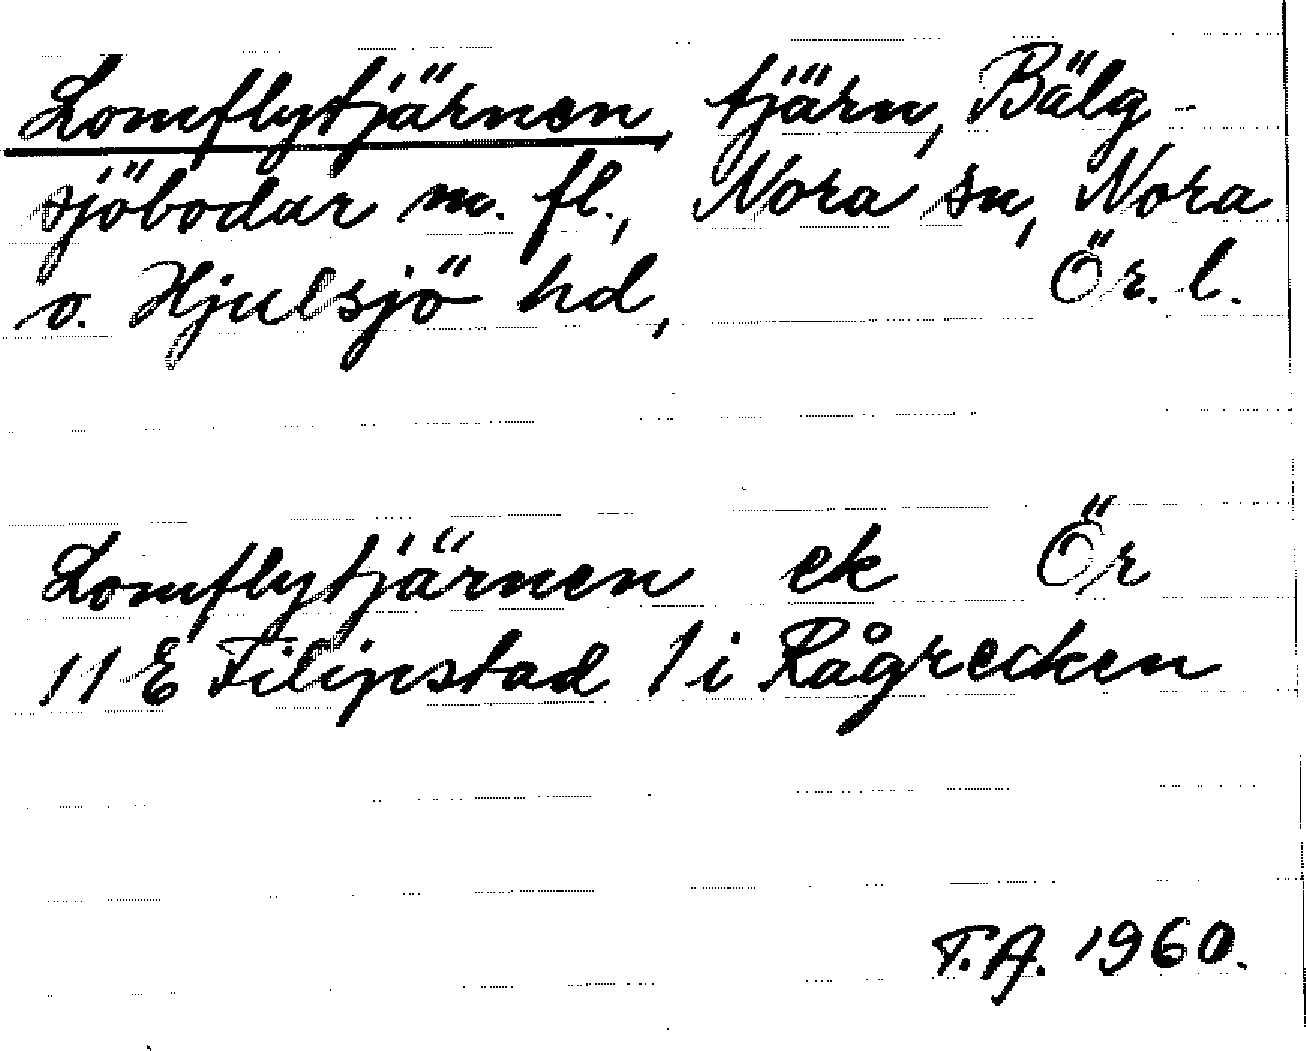 Lomflytjärnen, tjärn, Bälg-
sjöbodar m. fl., Nora sn, Nora
o. Hjulsjö hd, Ör. l.
Lomflytjärnen ek Ör
11 E Filipstad 1 i Rågrecken
T.A. 1960.